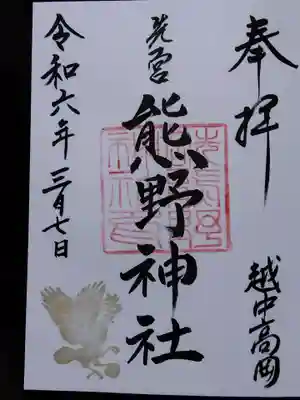 奉拝
越中高岡
先宮
熊野神社
令和六年三月七日